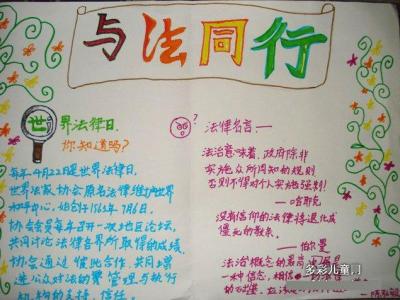 与法同行
世界法律日.
你知道吗?
每年4月22日是世界法律日,
世界法家协会原名法律维护世界
和平中心,组创于1963年7月6日.
协会会员每年召开一次地区论坛,
共同讨论法律各界所取得的成绩.
协会通过彼此合作,共同增
进公众对法的尊 管理与执行
机构的支持、信任.
法律名言:
法治意味着,政府除非
实施众所周知的规则
否则不得对个人实施强制!
—哈耶克
没有信仰的法律将退化成
僵死的教条.
—伯尔曼
法治概念的最高层次是
一种信念,相信一切法
多彩儿童网